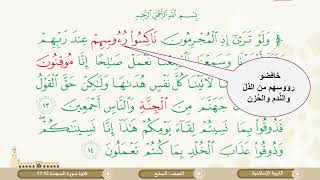 بِسْمِ اللَّهِ الرَّحْمَٰنِ الرَّحِيمِ
وَلَوْ تَرَىٰ إِذِ الْمُجْرِمُونَ نَاكِسُوا رُءُوسِهِمْ عِندَ رَبِّهِمْ
نَعْمَلْ صَالِحًا إِنَّا مُوقِنُونَ
كُلَّ نَفْسٍ هُدَاهَا وَلَٰكِنْ حَقَّ الْقَوْلُ
جَهَنَّمَ مِنَ الْجِنَّةِ وَالنَّاسِ أَجْمَعِينَ ١٣
فَذُوقُوا بِمَا نَسِيتُمْ لِقَاءَ يَوْمِكُمْ هَٰذَا إِنَّا نَسِينَاكُمْ
وَذُوقُوا عَذَابَ الْخُلْدِ بِمَا كُنتُمْ تَعْمَلُونَ ١٤
خافضو
رؤوسهم من الذل
والندم والحزن
التربية الإسلامية
الصف: السابع
تلاوة سورة السجدة 12-17